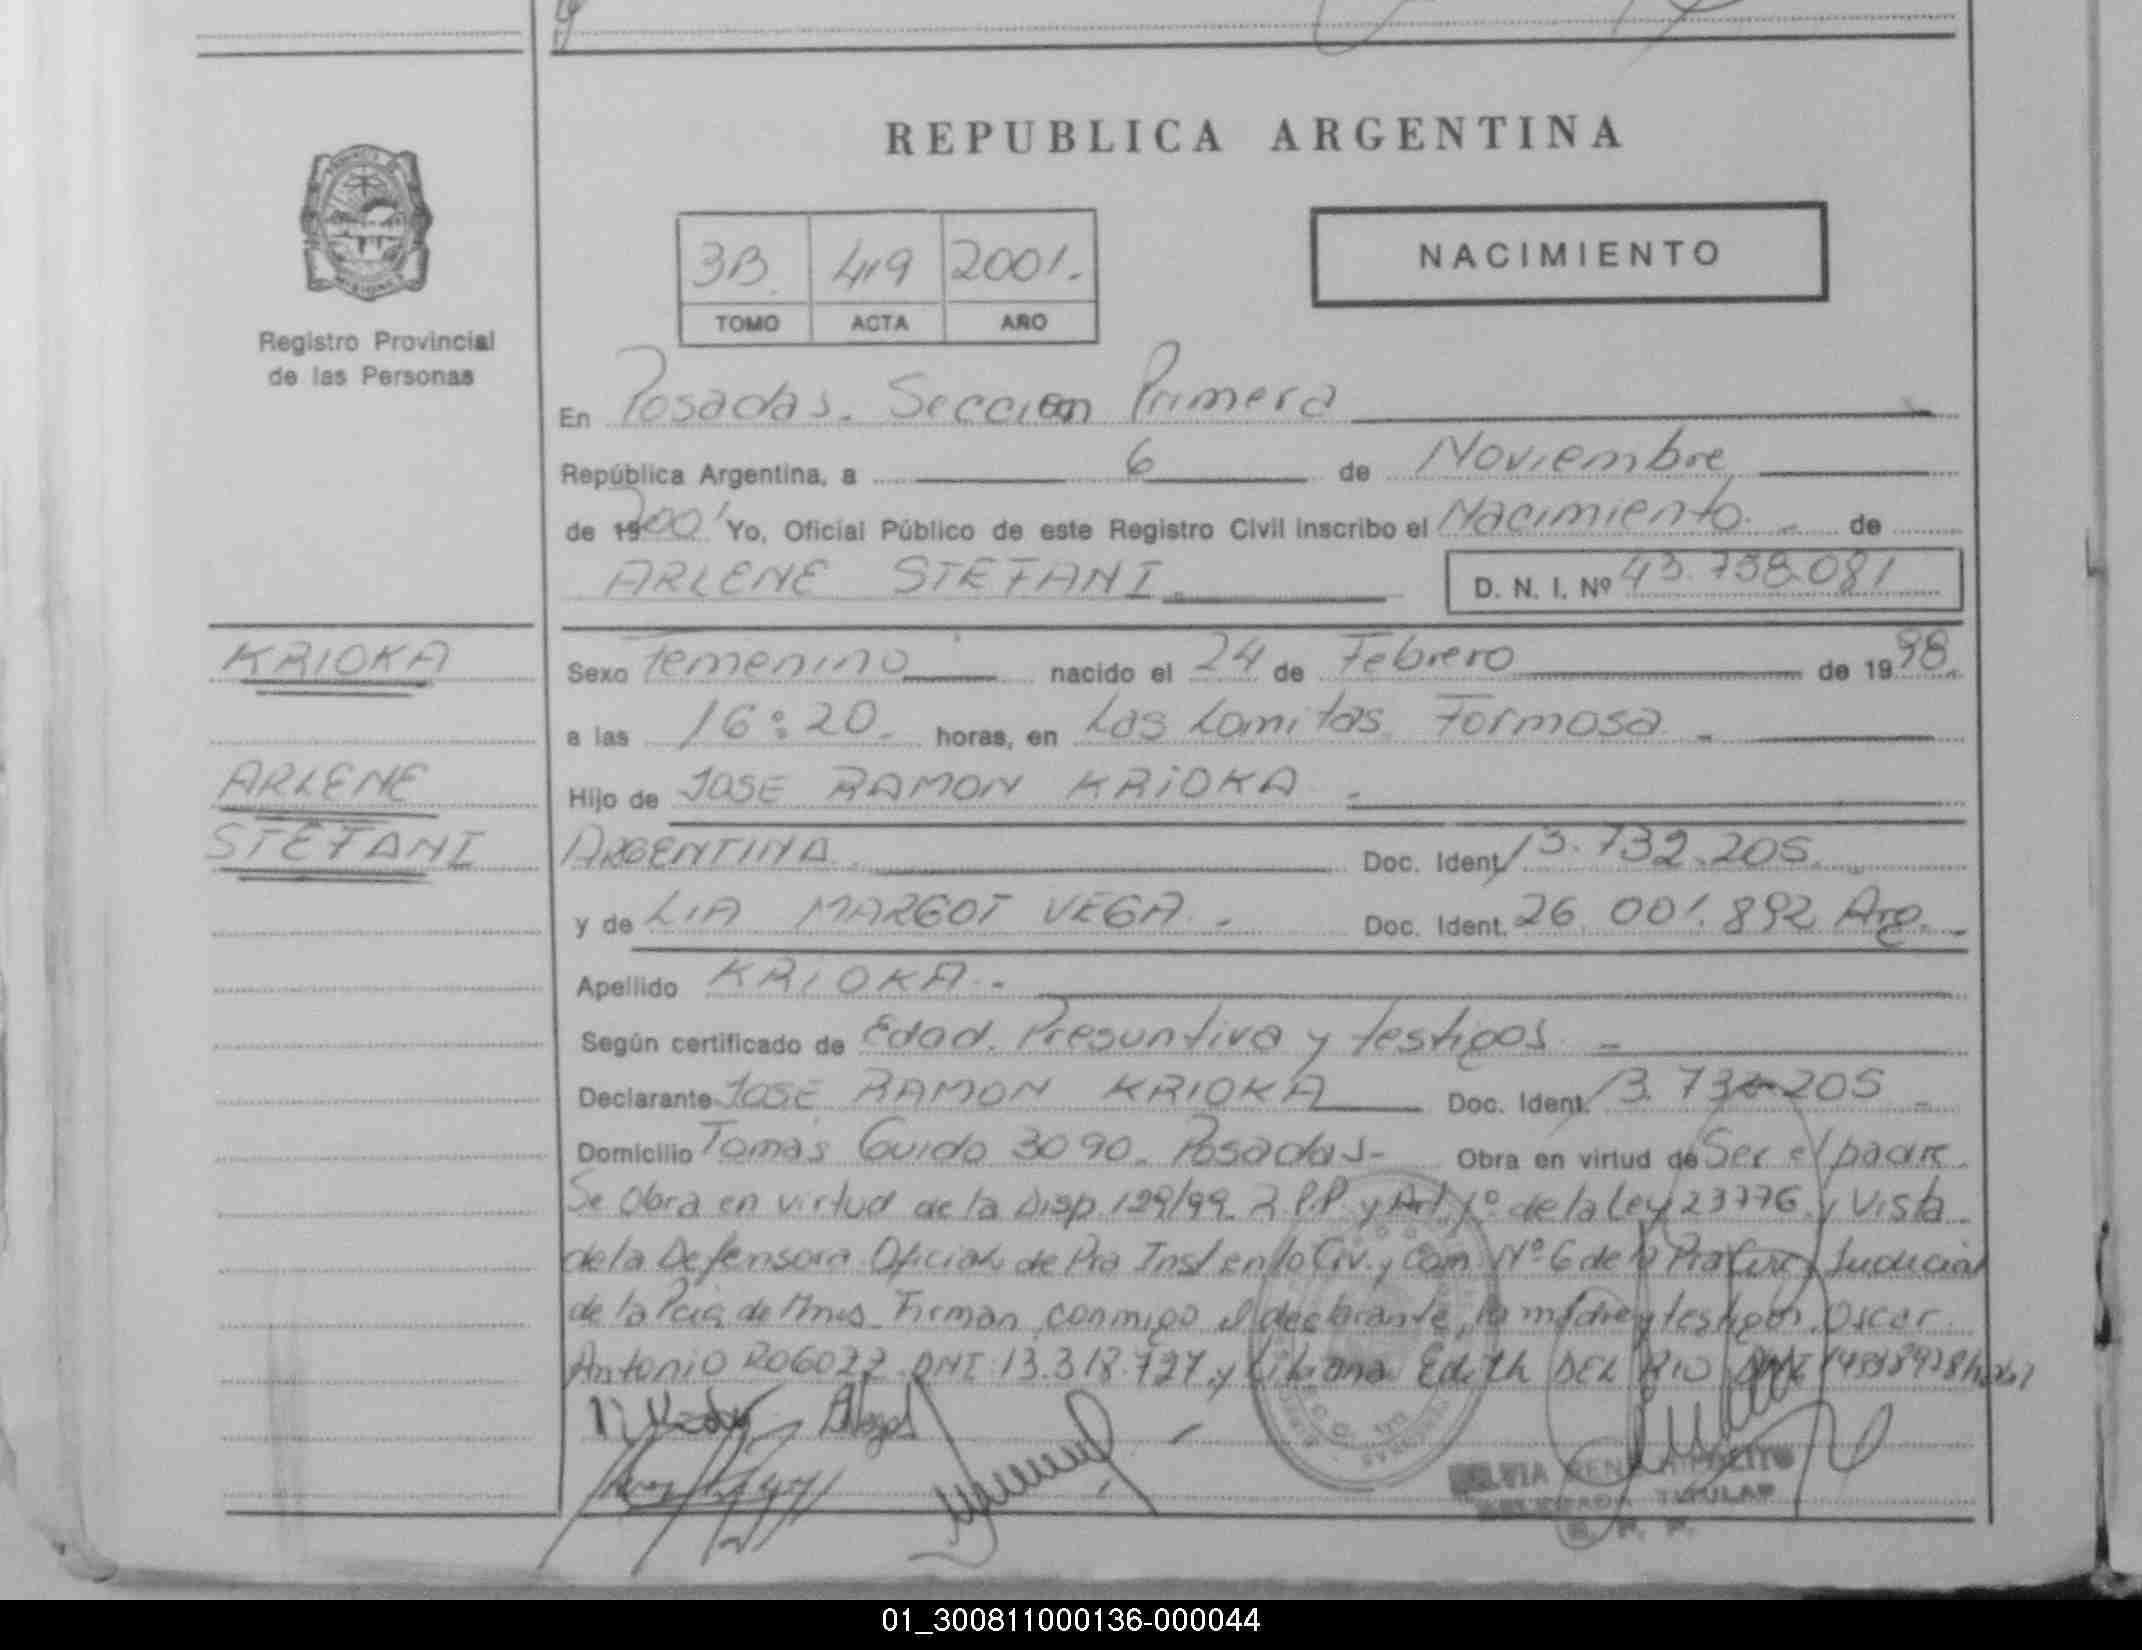 REPUBLICA ARGENTINA
NACIMIENTO
3B 419 2001.
TOMO ACTA AÑO
Registro Provincial
de las Personas
En Posadas. Seccion Primera
República Argentina, a 6 de Noviembre
de 19 2001 Yo, Oficial Público de este Registro Civil inscribo el Nacimiento. - de
ARLENE STEFANI. D. N. I. Nº 43.738.081
KRIOKA
Sexo Femenino nacido el 24 de Febrero de 1998.
a las 16:20. horas, en Las Lomitas. Formosa. -
ARLENE
Hijo de JOSE RAMON KRIOKA -
STEFANI
ARGENTINA. Doc. Ident. 13.732.205.
y de LIA MARGOT VEGA. - Doc. Ident. 26.001.892 Arg. -
Apellido KRIOKA. -
Según certificado de Edad. Presuntiva y testigos -
Declarante JOSE RAMON KRIOKA Doc. Ident. 13.732.205 -
Domicilio Tomas Guido 3090. Posadas- Obra en virtud de Ser el padre.
Se Obra en virtud de la Disp. 129/99. R.P.P y Art. 1º de la Ley 23776. y Vista
de la Defensora Oficial de Pra Inst en lo Civ. y Com. Nº 6 de la Pra Circ. Judicial
de la Pcia de Mnes. Firman conmigo el declarante, la madre y testigos. Oscar
Antonio DNI 13.318.727. y Liliana Edith DEL RIO DNI
TITULAR
R. P. P.
01_300811000136-000044